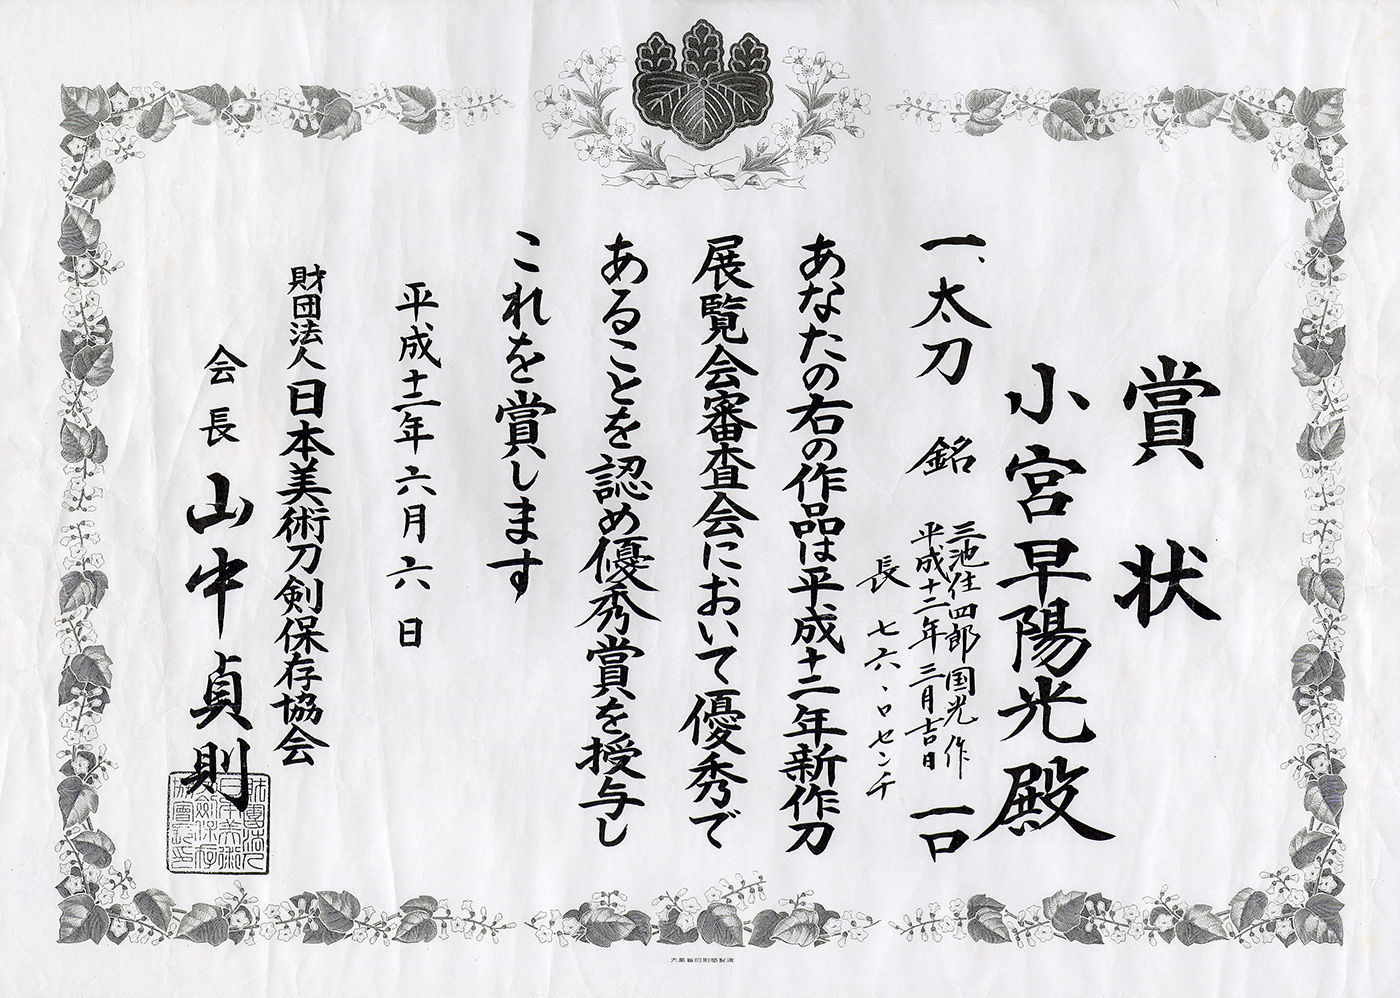 賞状
小宮早陽光殿
一、太刀 銘 三池住四郎国光作 一口
平成十二年三月吉日
長 七六、〇センチ
あなたの右の作品は平成十二年新作刀
展覧会審査会において優秀で
あることを認め優秀賞を授与し
これを賞します
平成十二年六月六日
財団法人日本美術刀剣保存協会
会長 山中貞則
財團法人日本美術刀劍保存協會長印
大蔵省印刷局製造